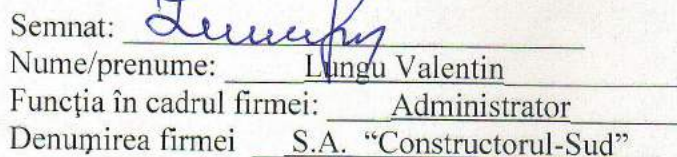 Semnat:
Nume/prenume: Lungu Valentin
Funcţia în cadrul firmei: Administrator
Denumirea firmei S.A. “Constructorul-Sud”